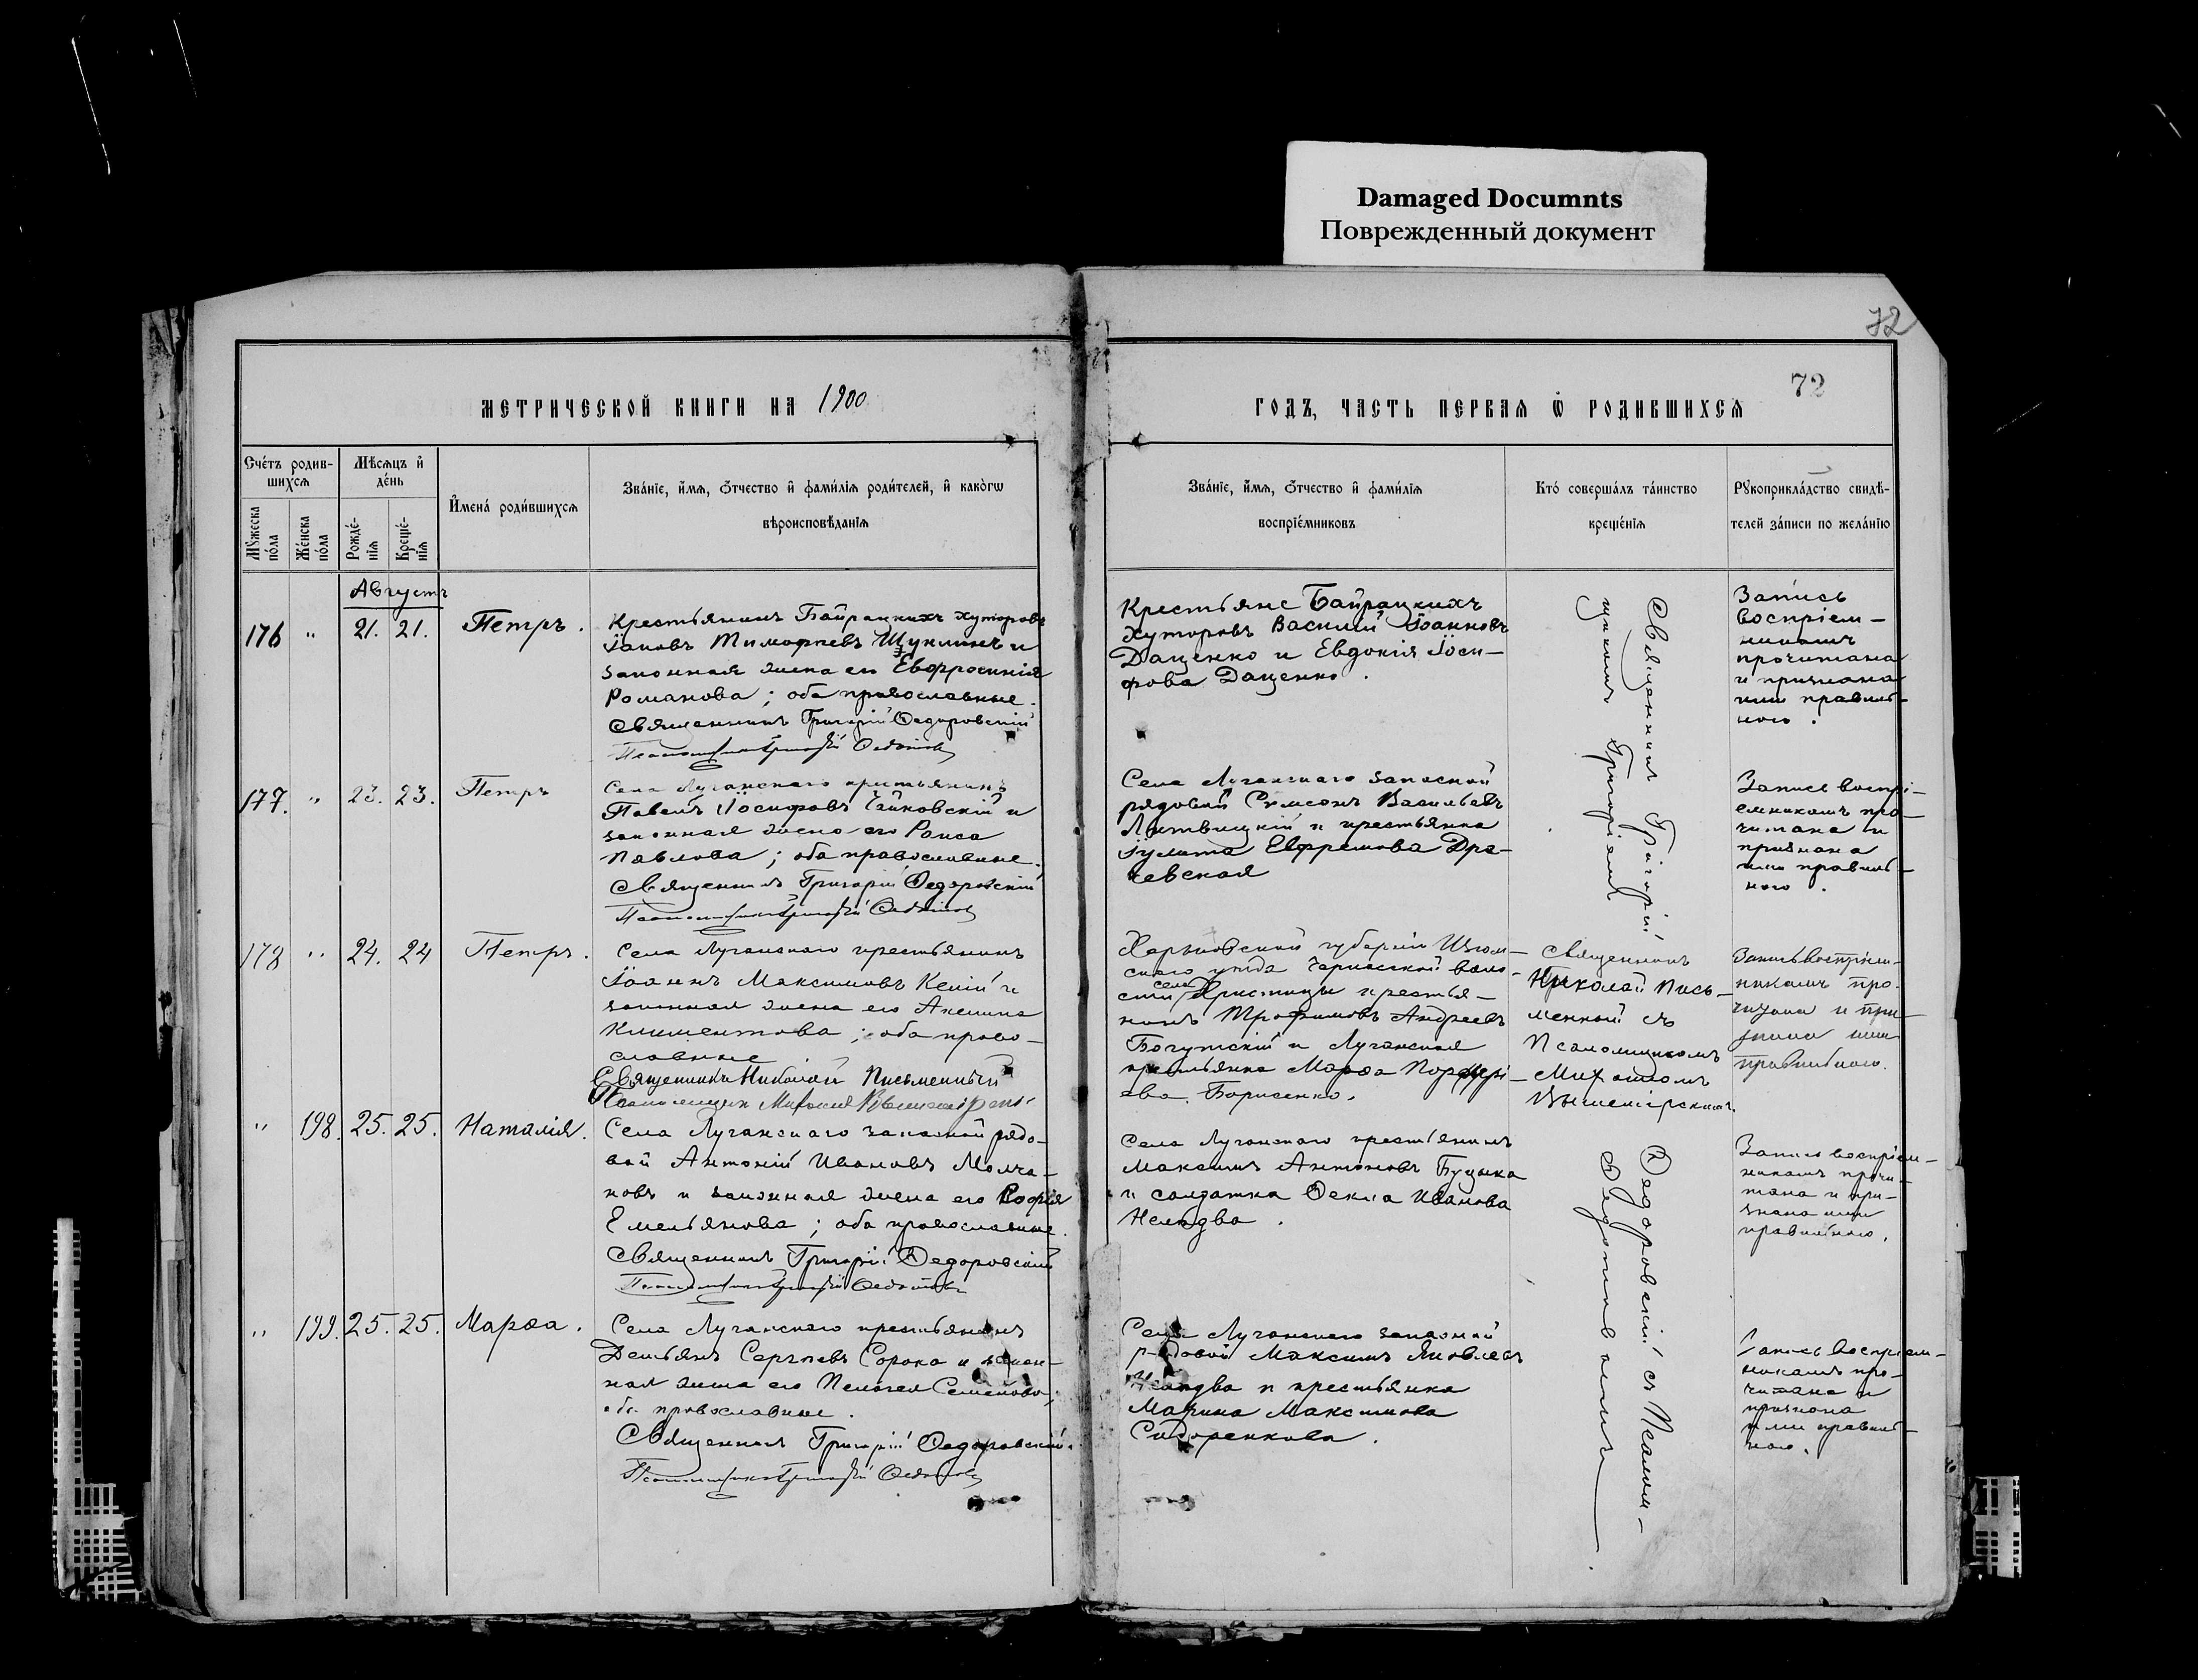 Damaged Documnts
Поврежденный документ
72
72
МЕТРИЧЕСКОЙ КНИГИ НА 1900
ГОДЪ, ЧАСТЬ ПЕРВАЯ Ѡ РОДИВШИХСЯ
Счетъ родив-
шихся
Мужеска
пола
Женска
пола
Мѣсяцъ и
день
Рожде-
нія
Креще-
нія
Имена родившихся
Званіе, имя, отчество и фамилія родителей, и какогѡ
вѣроисповѣданія
Званіе, имя, отчество и фамилія
воспріемниковъ
Кто совершалъ таинство
крещенія
Рукоприкладство свидѣ-
телей записи по желанію
Августъ
176 " 21. 21. Петръ.
Крестьянинъ Байрацкихъ хуторовъ
Іаковъ Тимофеевъ Щукинъ и
законная жена его Евфросинія
Романова; оба православные.
Священникъ Григорій Ѳедоровскій
Крестьяне Байрацкихъ
хуторовъ Василий Іоанновъ
Даценко и Евдокія Іоси-
фова Даценко.
Запись
воспріем-
никамъ
прочитана
и признана
ими правиль-
ною.
177. " 23. 23. Петръ
Села Луганскаго крестьянинъ
Павелъ Іосифовъ Чайковскій и
законная жена его Раиса
Павлова; оба православные.
Священникъ Григорій Ѳедоровскій
Села Луганскаго запасной
рядовой Симеонъ Васильевъ
Литвицкій и крестьянка
Іулита Ефремова Дра-
чевская
Запись воспрі-
емникамъ про-
читана и
признана
ими правиль-
ною.
178 " 24. 24 Петръ.
Села Луганскаго крестьянинъ
Іоаннъ Максимовъ и
законная жена его Акилина
Климентова; оба право-
славные
Священникъ Николай Письменный
Харьковской губерніи Изюм-
скаго уѣзда волос-
сти села крестья-
нинъ Трофимовъ Андреевъ
Богутскій и Луганская
крестьянка Марѳа Порфирі-
ева Борисенко.
Священникъ
Николай Пись-
менный съ
Псаломщикомъ
Запись воспріем-
никамъ про-
читана и при-
знана ими
правильною.
" 198. 25. 25. Наталія.
Села Луганскаго запасной рядо-
вой Антоній Ивановъ Молча-
новъ и законная жена его Софія
Емельянова; оба православные.
Священникъ Григорій Ѳедоровскій
Села Луганскаго крестьянинъ
Максимъ Антоновъ Бузыка
и солдатка Ѳекла Иванова
Запись воспріем-
никамъ прочи-
тана и при-
знана ими
правильною.
" 199. 25. 25. Марѳа.
Села Луганскаго крестьянинъ
Демьянъ Сергѣевъ Сорока и закон-
ная жена его Пелагея Семенова;
оба православные.
Священникъ Григорій Ѳедоровскій
Села Луганскаго запасной
рядовой Максимъ Яковлевъ
и крестьянка
Марина Максимова
Сидоренкова.
Запись воспріем-
никамъ про-
читана и
признана
ими правиль-
ною.
Священникъ Григорій Ѳедоровскій съ Псалом-
щикомъ Григоріемъ